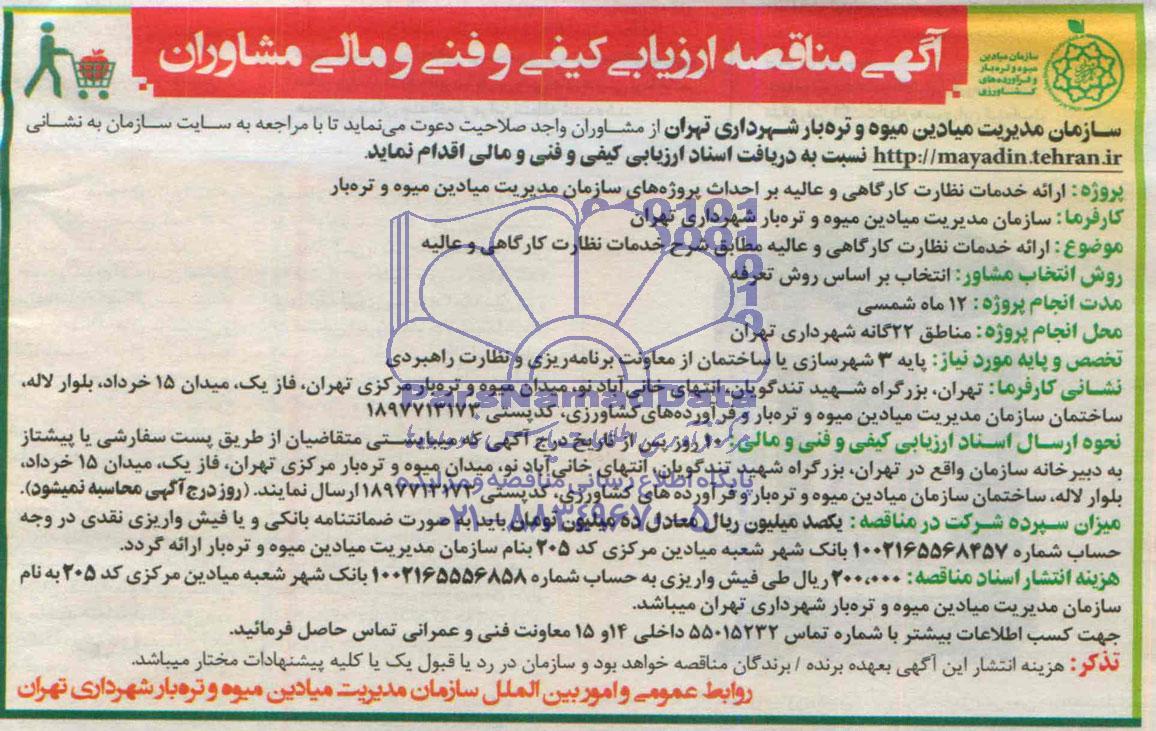 آگهی مناقصه ارزیابی کیفی و فنی و مالی مشاوران
سازمان میادین
میوه و تره‌بار
و فرآورده‌های
کشاورزی
سازمان مدیریت میادین میوه و تره‌بار شهرداری تهران از مشاوران واجد صلاحیت دعوت می‌نماید تا با مراجعه به سایت سازمان به نشانی
http://mayadin.tehran.ir نسبت به دریافت اسناد ارزیابی کیفی و فنی و مالی اقدام نماید.
پروژه: ارائه خدمات نظارت کارگاهی و عالیه بر احداث پروژه‌های سازمان مدیریت میادین میوه و تره‌بار
کارفرما: سازمان مدیریت میادین میوه و تره‌بار شهرداری تهران
موضوع: ارائه خدمات نظارت کارگاهی و عالیه مطابق شرح خدمات نظارت کارگاهی و عالیه
روش انتخاب مشاور: انتخاب بر اساس روش تعرفه
مدت انجام پروژه: ۱۲ ماه شمسی
محل انجام پروژه: مناطق ۲۲گانه شهرداری تهران
تخصص و پایه مورد نیاز: پایه ۳ شهرسازی یا ساختمان از معاونت برنامه‌ریزی و نظارت راهبردی
نشانی کارفرما: تهران، بزرگراه شهید تندگویان، انتهای خانی‌آباد نو، میدان میوه و تره‌بار مرکزی تهران، فاز یک، میدان ۱۵ خرداد، بلوار لاله،
ساختمان سازمان مدیریت میادین میوه و تره‌بار و فرآورده‌های کشاورزی، کدپستی ۱۸۹۷۷۱۳۱۷۳
نحوه ارسال اسناد ارزیابی کیفی و فنی و مالی: ۱۰ روز پس از تاریخ درج آگهی که میبایستی متقاضیان از طریق پست سفارشی یا پیشتاز
به دبیرخانه سازمان واقع در تهران، بزرگراه شهید تندگویان، انتهای خانی‌آباد نو، میدان میوه و تره‌بار مرکزی تهران، فاز یک، میدان ۱۵ خرداد،
بلوار لاله، ساختمان سازمان میادین میوه و تره‌بار و فرآورده های کشاورزی، کدپستی ۱۸۹۷۷۱۳۱۷۳ ارسال نمایند. (روز درج آگهی محاسبه نمیشود).
میزان سپرده شرکت در مناقصه: یکصد میلیون ریال معادل ده میلیون تومان باید به صورت ضمانتنامه بانکی و یا فیش واریزی نقدی در وجه
حساب شماره ۱۰۰۲۱۶۵۵۶۸۴۵۷ بانک شهر شعبه میادین مرکزی کد ۲۰۵ بنام سازمان مدیریت میادین میوه و تره‌بار ارائه گردد.
هزینه انتشار اسناد مناقصه: ۲۰۰،۰۰۰ ریال طی فیش واریزی به حساب شماره ۱۰۰۲۱۶۵۵۵۶۸۵۸ بانک شهر شعبه میادین مرکزی کد ۲۰۵ به نام
سازمان مدیریت میادین میوه و تره‌بار شهرداری تهران میباشد.
جهت کسب اطلاعات بیشتر با شماره تماس ۵۵۰۱۵۲۳۲ داخلی ۱۴ و ۱۵ معاونت فنی و عمرانی تماس حاصل فرمائید.
تذکر: هزینه انتشار این آگهی بعهده برنده / برندگان مناقصه خواهد بود و سازمان در رد یا قبول یک یا کلیه پیشنهادات مختار میباشد.
روابط عمومی و امور بین الملل سازمان مدیریت میادین میوه و تره‌بار شهرداری تهران
ParsNamadData
پایگاه اطلاع رسانی مناقصه و مزایده
۰۲۱-۸۸۳۴۹۶۷۰-۵